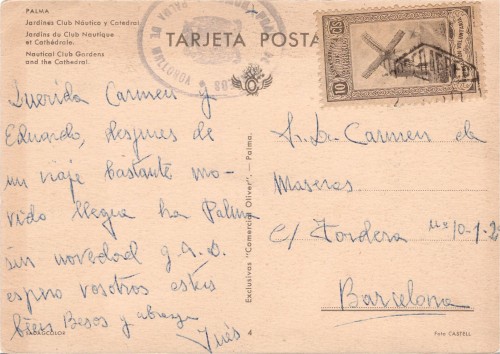 PALMA
Jardines Club Náutico y Catedral.
Jardins du Club Nautique
et Cathédrale.
Nautical Club Gardens
and the Cathedral.
TARJETA POSTA
PALMA DE
Querida Carmen y
Eduardo, despues de
un viaje bastante mo-
vido llegua ha Palma
sin novedad g. A. D.
espero vosotros esteis
bien Besos y abrazos
Inés
FABACOLOR
Exclusivas "Comercial Oliver". - Palma.
4
10
Sr. D. Carmen de
Maseras
c/ Tordera nº 10-1-2
Barcelona
Foto CASTELL